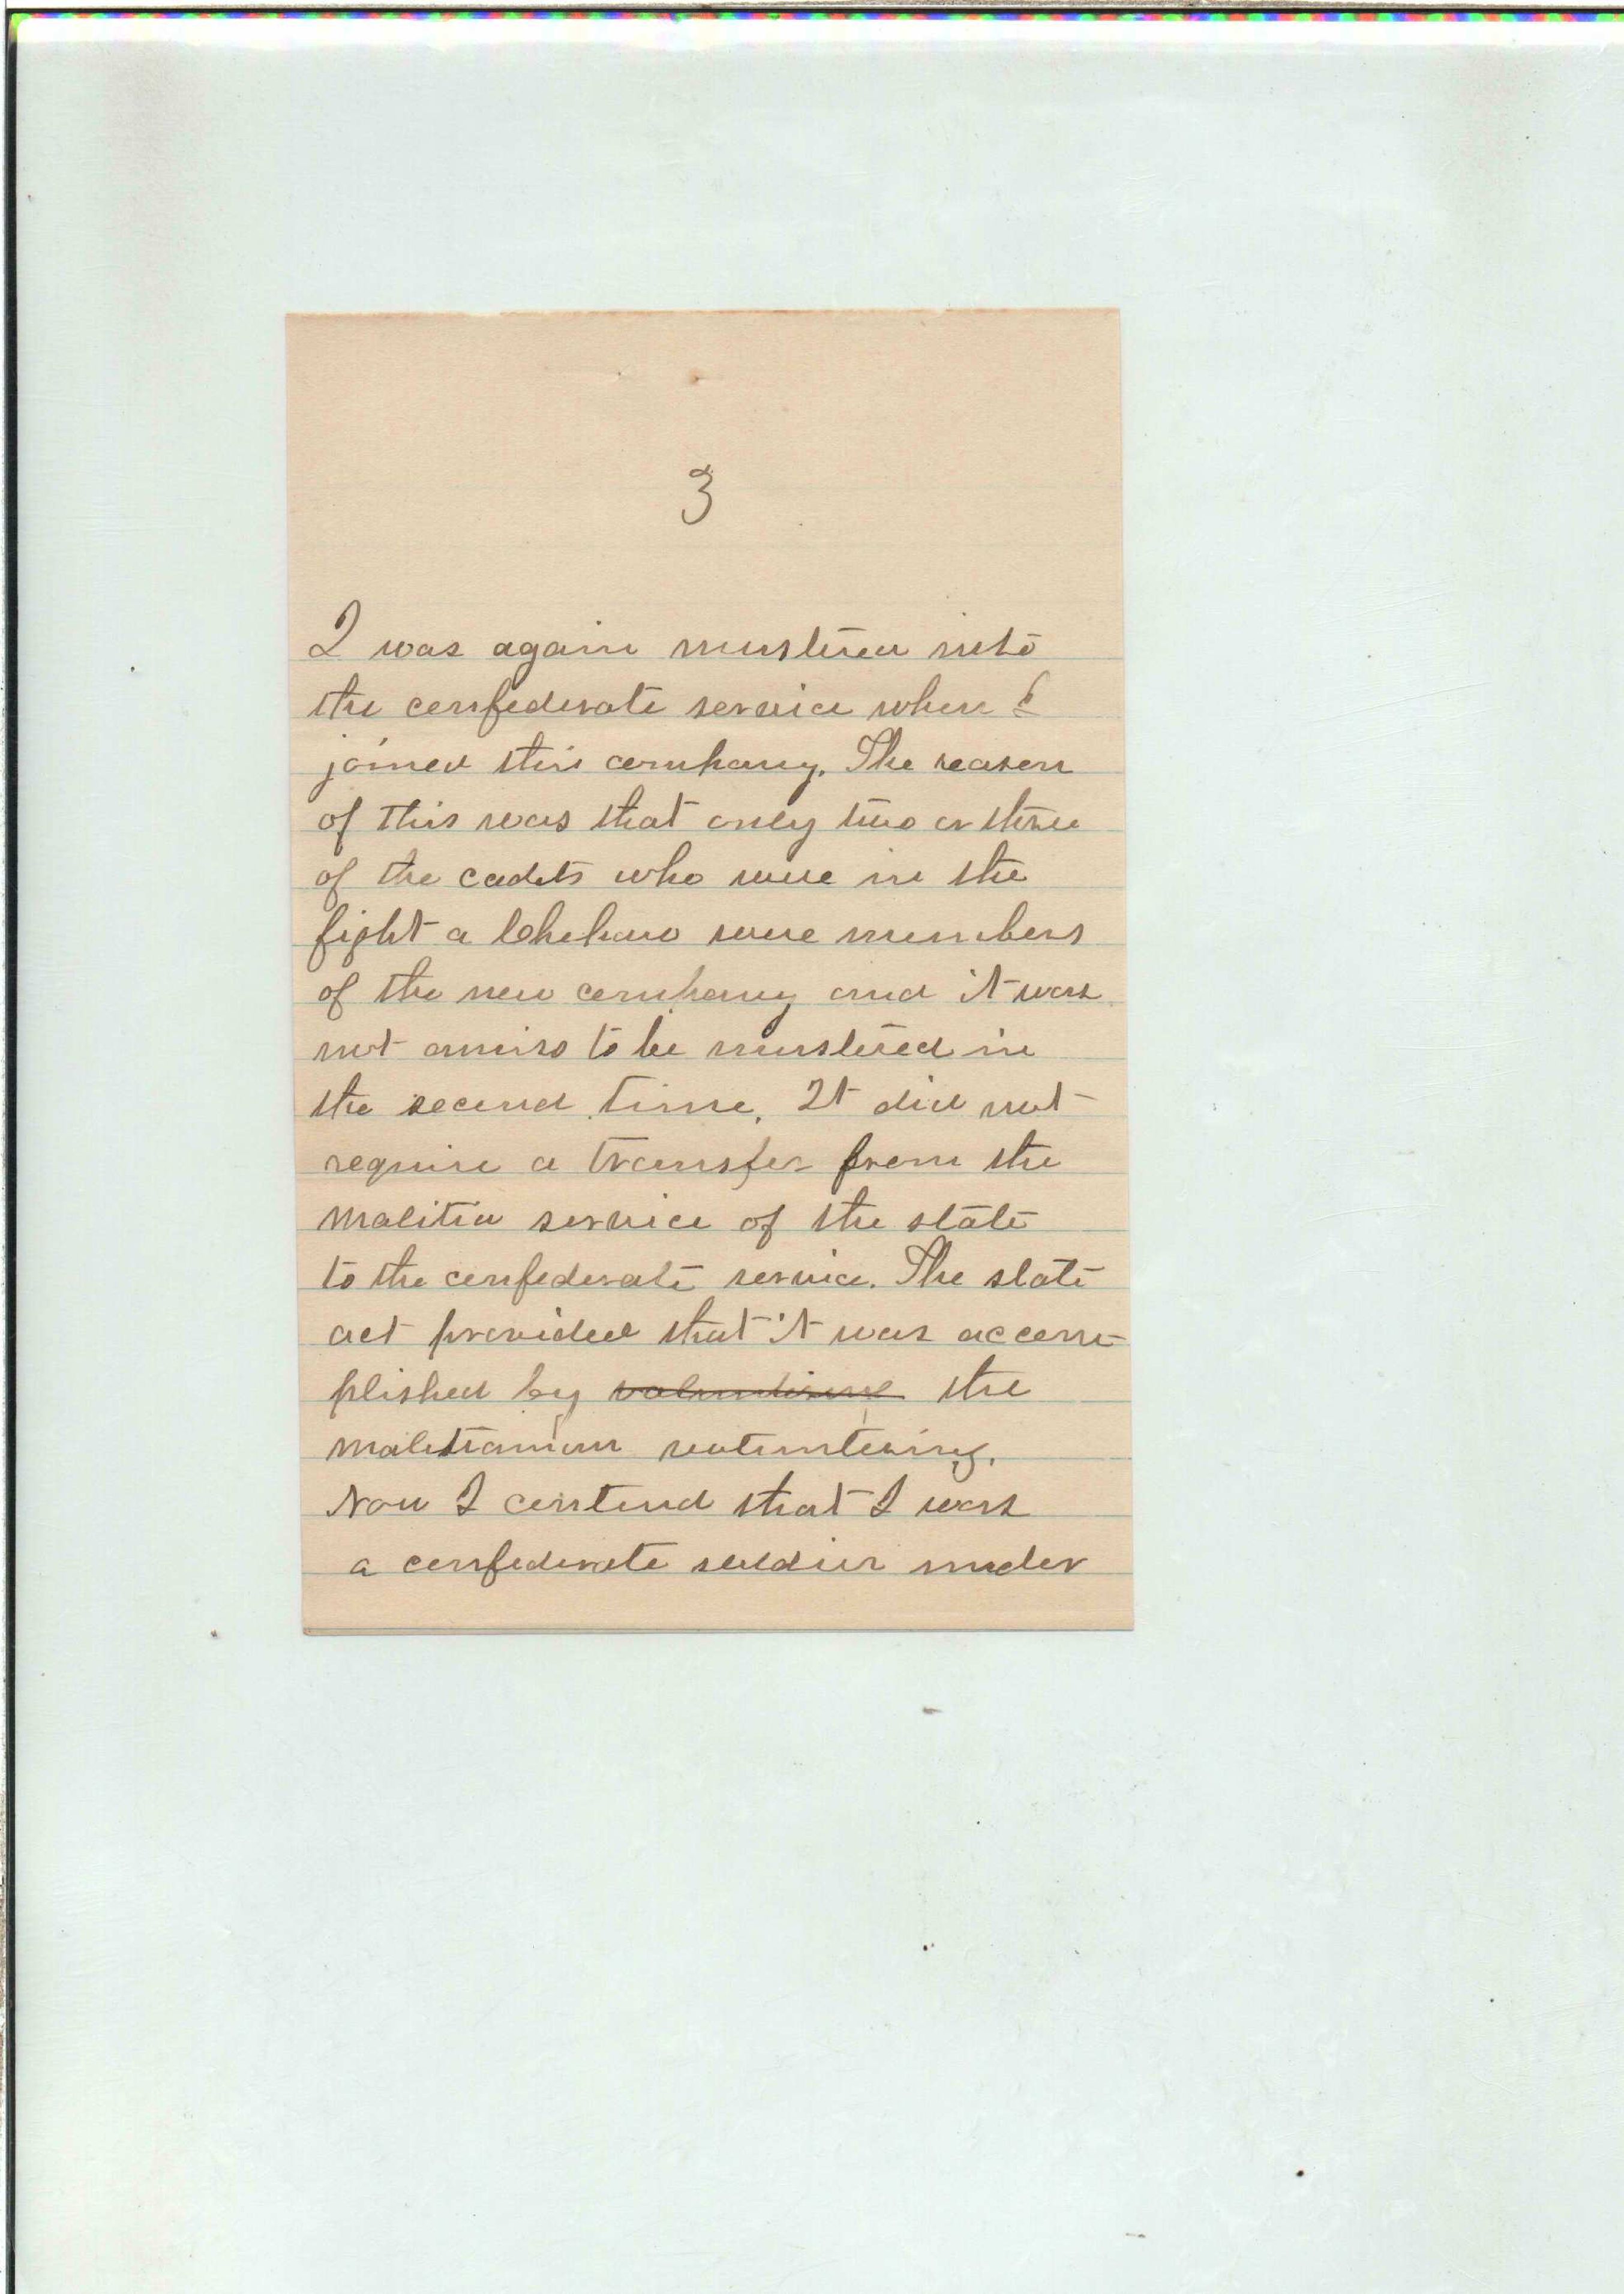 3
I was again mustered into
the confederate service when I
joined this company. The reason
of this was that only two or three
of the cadets who were in the
fight a Chehaw were members
of the new company and it was
not amiss to be mustered in
the second time. It did not
require a transfer from the
malitia service of the state
to the confederate service. The state
act provided that it was accom-
plished by the
malitiaman volunteering.
Now I contend that I was
a confederate soldier under